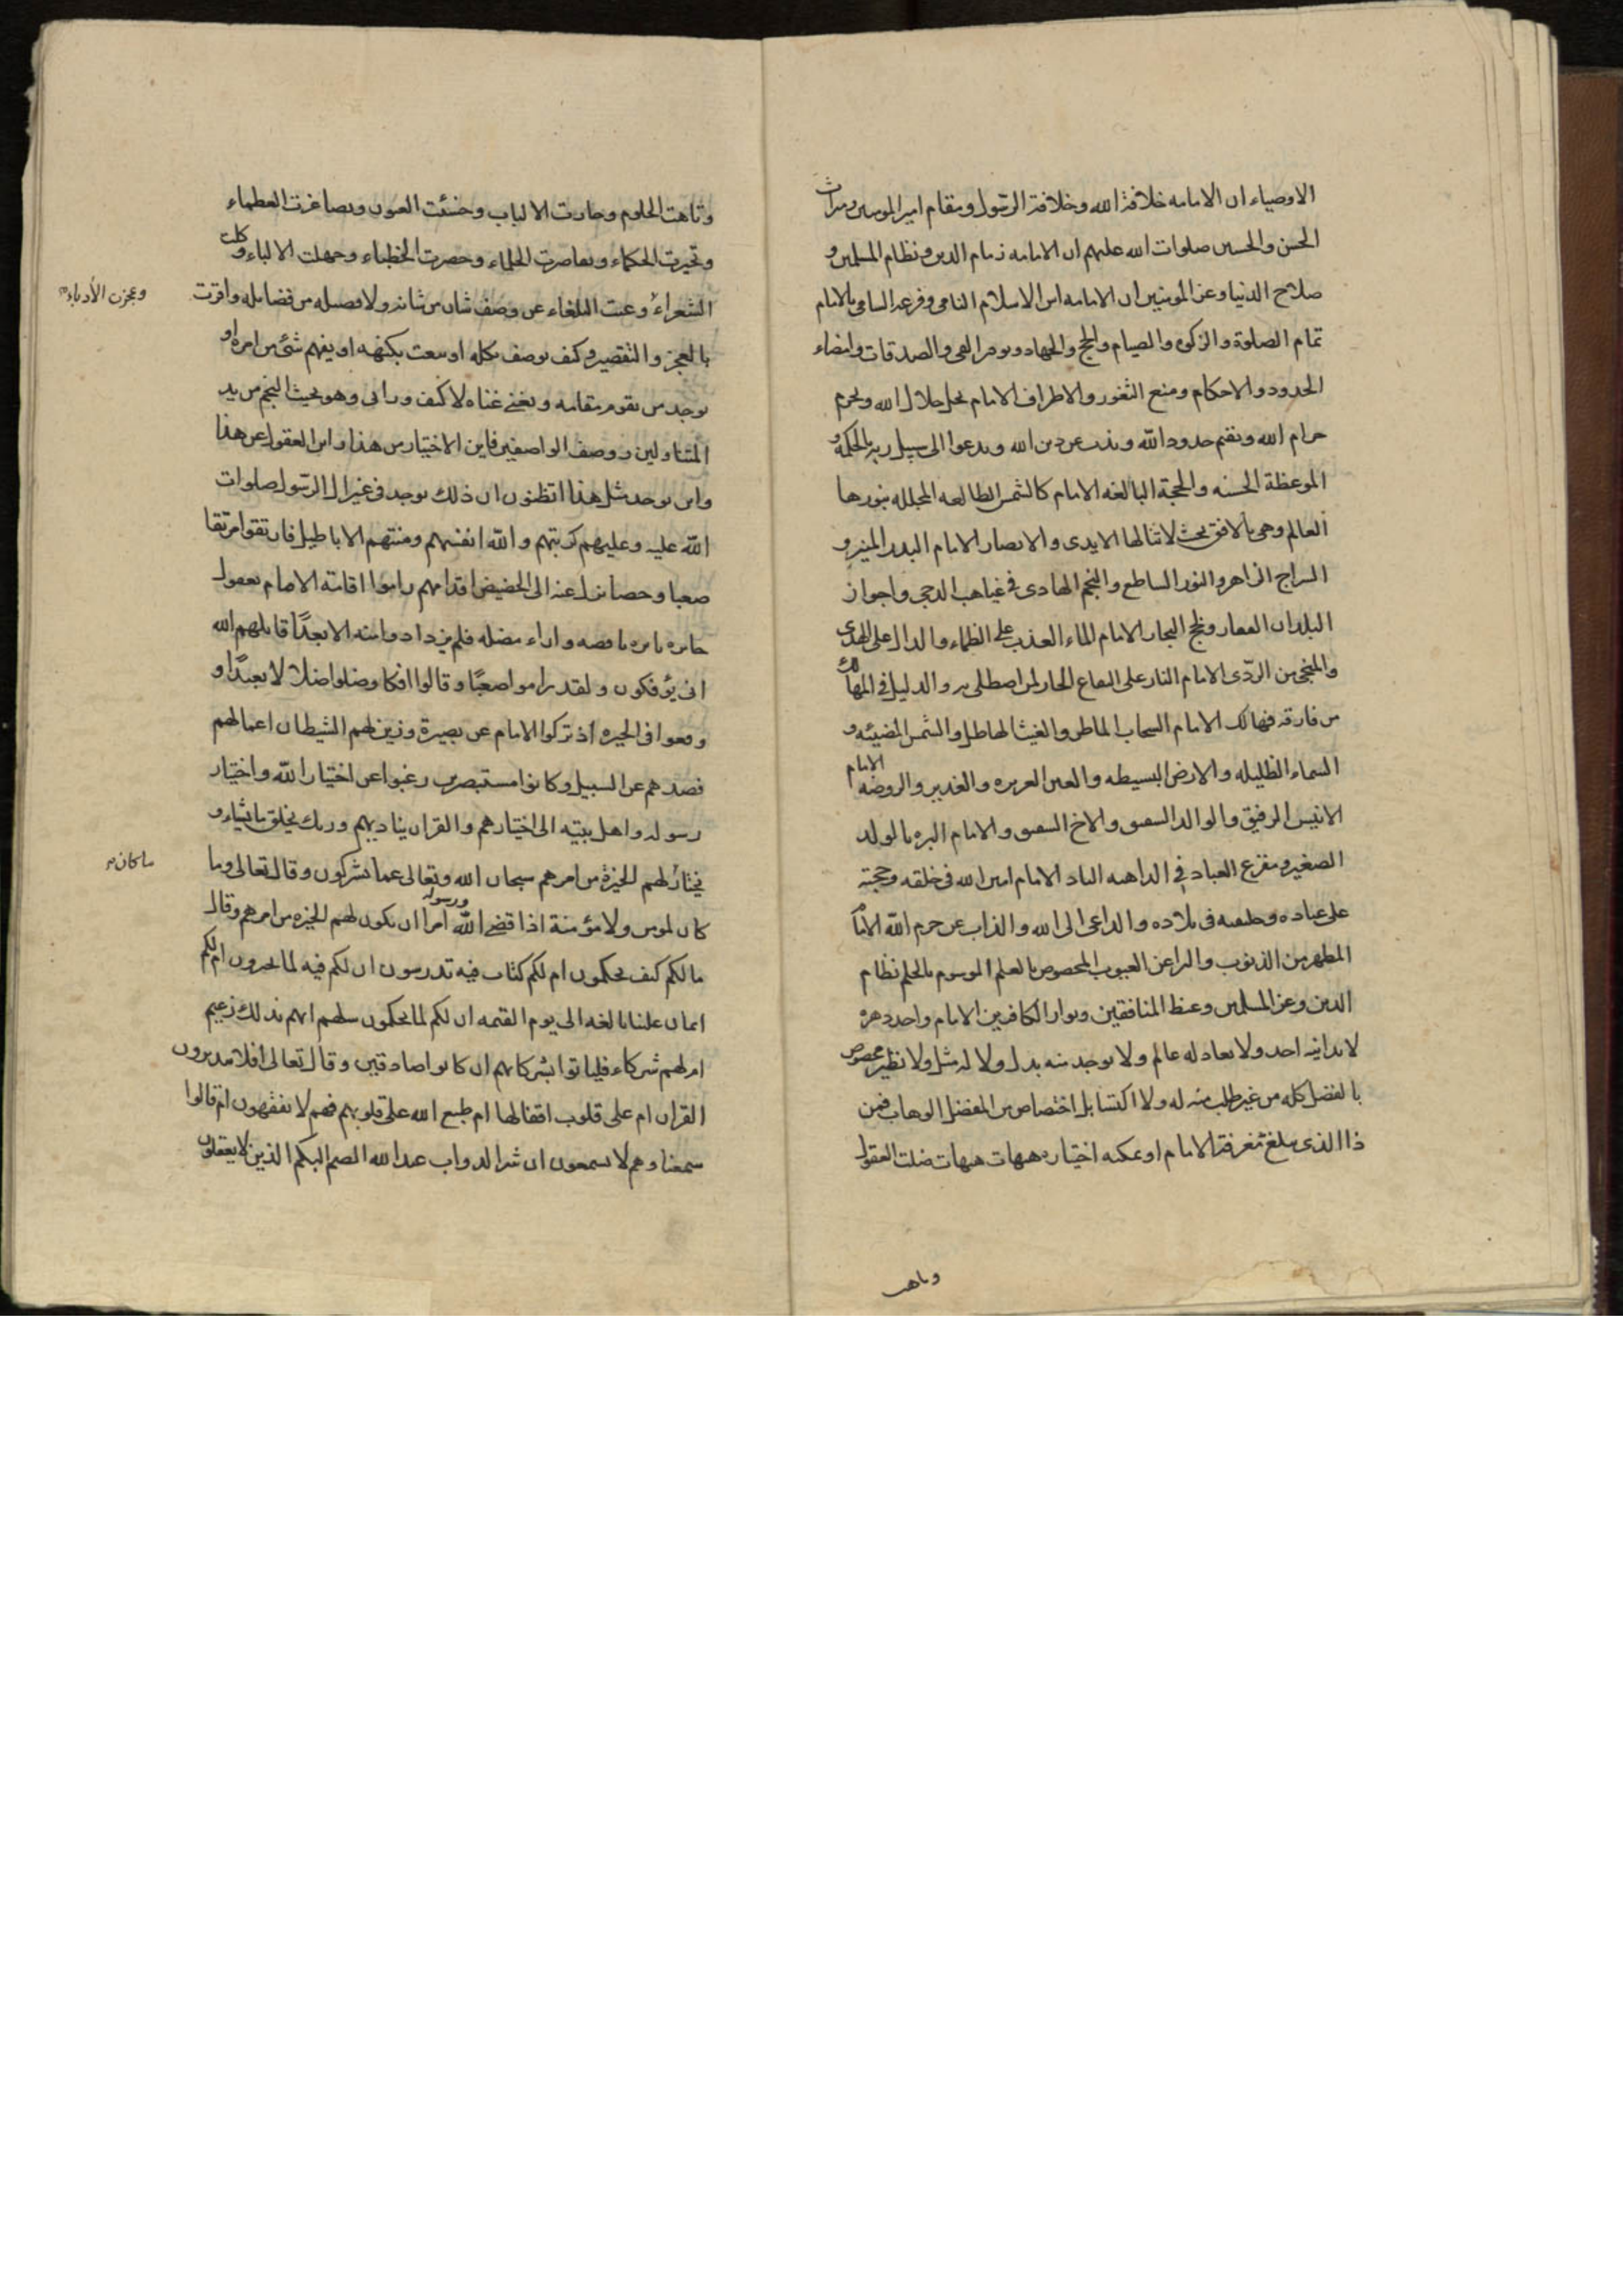 الاوصياء ان الامامه خلافة الله وخلافة الرسول ومقام امير المومنين وميراث
الحسن والحسين صلوات الله عليهم ان الامامه زمام الدين ونظام المسلمين و
صلاح الدنيا وعز المومنين ان الامامه اس الاسلام النامى وفرعه السامى بالامام
تمام الصلوة والزكوة والصيام والحج والجهاد وتوفير الفى والصدقات وامضاء
الحدود والاحكام ومنع الثغور والاطراف الامام يحل حلال الله ويحرم
حرام الله ويقيم حدود الله ويذب عن دين الله ويدعوا الى سبيل ربه بالحكمة و
الموعظة الحسنه والحجة البالغه الامام كالشمس الطالعه المجلله بنورها
العالم وهى بالافق بحيث لا تنالها الايدى والابصار الامام البدر المنير و
السراج الزاهر والنور الساطع والنجم الهادى فى غياهب الدجى واجواز
البلدان القفار ولجج البحار الامام الماء العذب على الظماء والدال على الهدى
والمنجى من الردّى الامام النار على اليفاع الحار لمن اصطلى به والدليل فى المهالك
من فارقه فهالك الامام السحاب الماطر والغيث الهاطل والشمس المضيئه و
السماء الظليله والارض البسيطه والعين الغزيره والغدير والروضه الامام
الانيس الرفيق والوالد الشفيق والاخ الشقيق والامام البره بالولد
الصغير ومفزع العباد فى الداهيه الناد الامام امين الله فى خلقه وحجته
على عباده وخليفته فى بلاده والداعى الى الله والذاب عن حرم الله الامام
المطهر من الذنوب والمبرا عن العيوب المخصوص بالعلم الموسوم بالحلم نظام
الدين وعز المسلمين وغيظ المنافقين وبوار الكافرين الامام واحد دهره
لا يدانيه احد ولا يعادله عالم ولا يوجد منه بدل ولا له مثل ولا نظير مخصوص
بالفضل كله من غير طلب منه له ولا اكتساب بل اختصاص من المفضل الوهاب فمن
ذا الذى يبلغ معرفة الامام او يمكنه اختياره هيهات هيهات ضلت العقول
وتاهت
وتاهت الحلوم وحارت الالباب وخسئت العيون وتصاغرت العظماء
وتحيرت الحكماء وتقاصرت الحلماء وحصرت الخطباء وجهلت الالباء وكلت
الشعراء وعيت البلغاء عن وصف شان من شانه ولا فضيله من فضايله واقرت
وعجزت الأدباء
بالعجز والتقصير وكيف يوصف بكله او ينعت بكنهه او يفهم شئ من امره او
يوجد من يقوم مقامه ويغنى غناه لا كيف وانى وهو بحيث النجم من يد
المتناولين ووصف الواصفين فاين الاختيار من هذا واين العقول عن هذا
واين يوجد مثل هذا اتظنون ان ذلك يوجد فى غير ال الرسول صلوات
الله عليه وعليهم كذبتهم والله انفسهم ومنتهم الاباطيل فارتقوا مرتقا
صعبا دحضا تزل عنه الى الحضيض اقدامهم راموا اقامة الامام بعقول
حايره بايره ناقصه واراء مضله فلم يزدادوا منه الا بعدًا قاتلهم الله
انى يؤفكون ولقد راموا صعبًا وقالوا افكا وضلوا ضلالا بعيدًا و
وقعوا فى الحيره اذ تركوا الامام عن بصيرة وزين لهم الشيطان اعمالهم
فصدهم عن السبيل وكانوا مستبصرين رغبوا عن اختيار الله واختيار
رسوله واهل بيته الى اختيارهم والقران يناديهم وربك يخلق ما يشاء و
يختار لهم الخيرة من امرهم سبحان الله وتعالى عما يشركون وقال تعالى وما
ما كان
كان لمومن ولا مؤمنة اذا قضى الله ورسوله امرا ان يكون لهم الخيره من امرهم وقال
ما لكم كيف تحكمون ام لكم كتاب فيه تدرسون ان لكم فيه لما تخيرون ام لكم
ايمان علينا بالغه الى يوم القيمه ان لكم لما تحكمون سلهم ايهم بذلك زعيم
ام لهم شركاء فلياتوا بشركائهم ان كانوا صادقين وقال تعالى افلا يتدبرون
القران ام على قلوب اقفالها ام طبع الله على قلوبهم فهم لا يفقهون ام قالوا
سمعنا وهم لا يسمعون ان شر الدواب عند الله الصم البكم الذين لا يعقلون